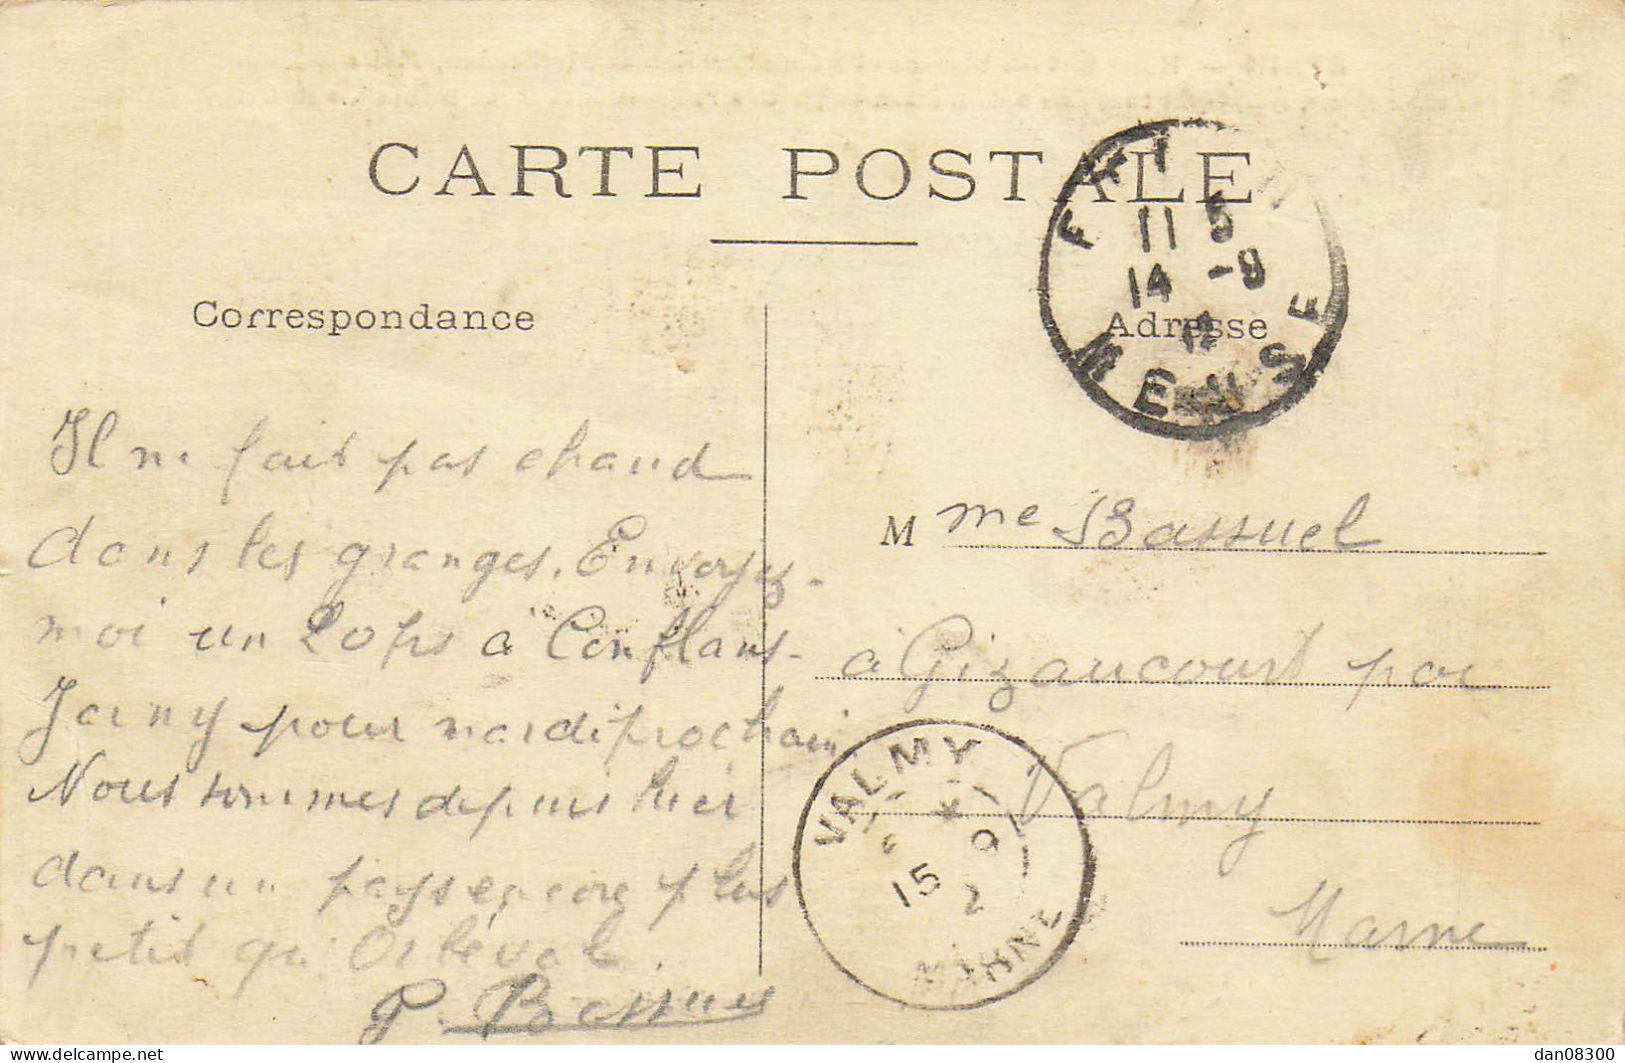 CARTE POSTALE
Correspondance
Adresse
Il ne fait pas chaud
dans les granges. Envoyez-
moi un colis à Conflans-
Jarny pour mardi prochain.
Nous sommes depuis hier
dans un pays encore plus
petit qu'Orbéval.
P. Bassuel
Mme Bassuel
à Gizaucourt par
Valmy
Marne
11 5
14 -9
12
MEUSE
VALMY
15 9
MARNE
delcampe.net
dan08300